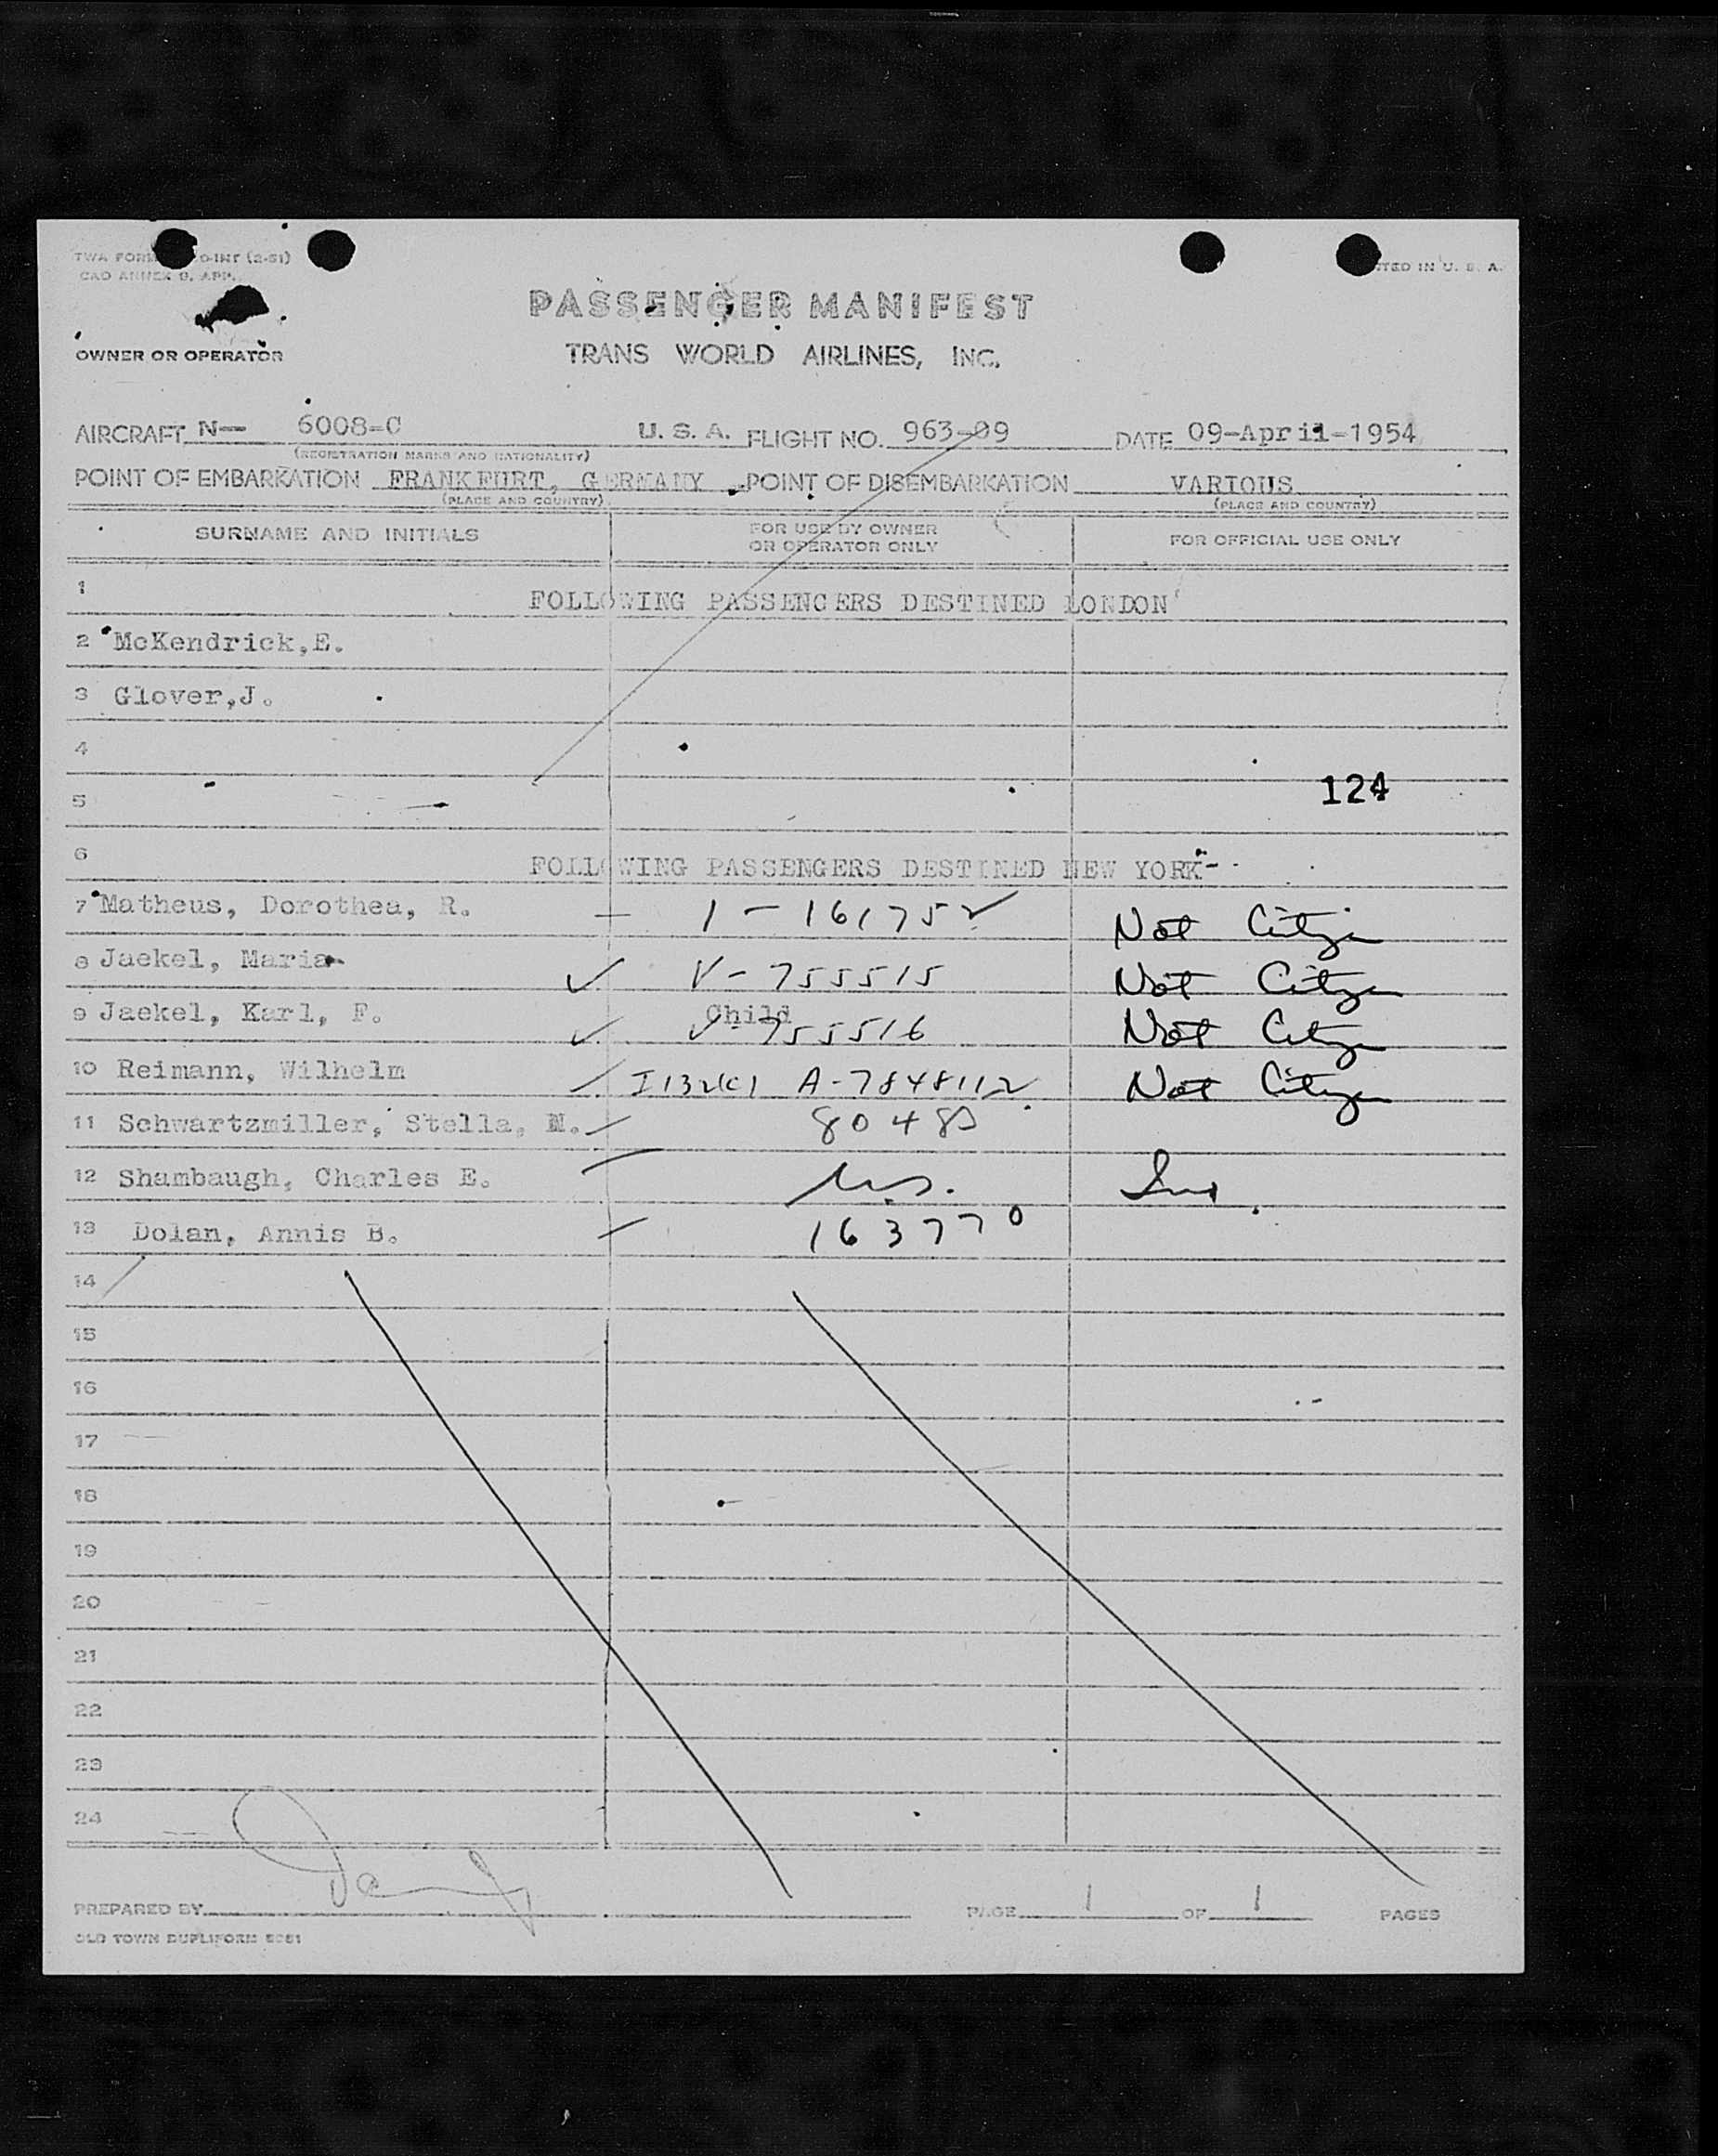 TWA FORM O-INT (2-51)
CAO ANNEX 9, APP.
TED IN U. S. A.
PASSENGER MANIFEST
OWNER OR OPERATOR TRANS WORLD AIRLINES, INC.
AIRCRAFT N— 6008-C U. S. A. FLIGHT NO. 963-09 DATE 09-April-1954
(REGISTRATION MARKS AND NATIONALITY)
POINT OF EMBARKATION FRANKFURT, GERMANY POINT OF DISEMBARKATION VARIOUS
(PLACE AND COUNTRY) (PLACE AND COUNTRY)
SURNAME AND INITIALS FOR USE BY OWNER OR OPERATOR ONLY FOR OFFICIAL USE ONLY
1 FOLLOWING PASSENGERS DESTINED LONDON
2 McKendrick,E.
3 Glover,J.
4
5 124
6 FOLLOWING PASSENGERS DESTINED NEW YORK-
7 Matheus, Dorothea, R. — 1-161752 Not Citizen
8 Jaekel, Maria ✓ V-755515 Not Citizen
9 Jaekel, Karl, F. Child ✓ V-755516 Not Citizen
10 Reimann, Wilhelm A-7848112 Not Citizen
11 Schwartzmiller, Stella, M.
12 Shambaugh, Charles E. U.S.
13 Dolan, Annis B. 163770
14
15
16
17
18
19
20
21
22
23
24
PREPARED BY PAGE 1 OF 1 PAGES
OLD TOWN DUPLIFORM